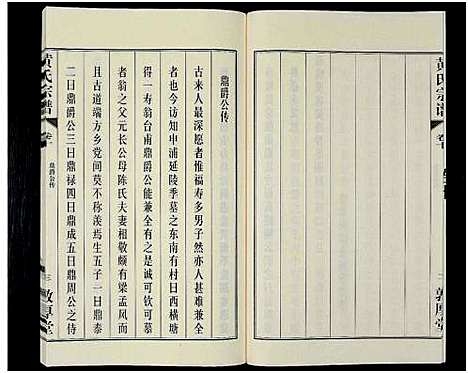 黄氏宗谱
卷一
敦厚堂
鼎爵公传
古来人最深愿者惟福寿多男子然亦人甚难兼全
者也今访知申浦延陵季墓之东南有村日西横塘
得一寿翁台甫鼎爵公能兼而有之是诚可钦可慕
者翁之父元长公母陈氏夫妻相敬颇有梁孟风而
且古道端方乡党间莫不称羡焉生五子一日鼎泰
二日鼎爵公三日鼎禄四日鼎成五日鼎周公之侍
黄氏宗谱
卷一
鼎爵公传
三
敦厚堂